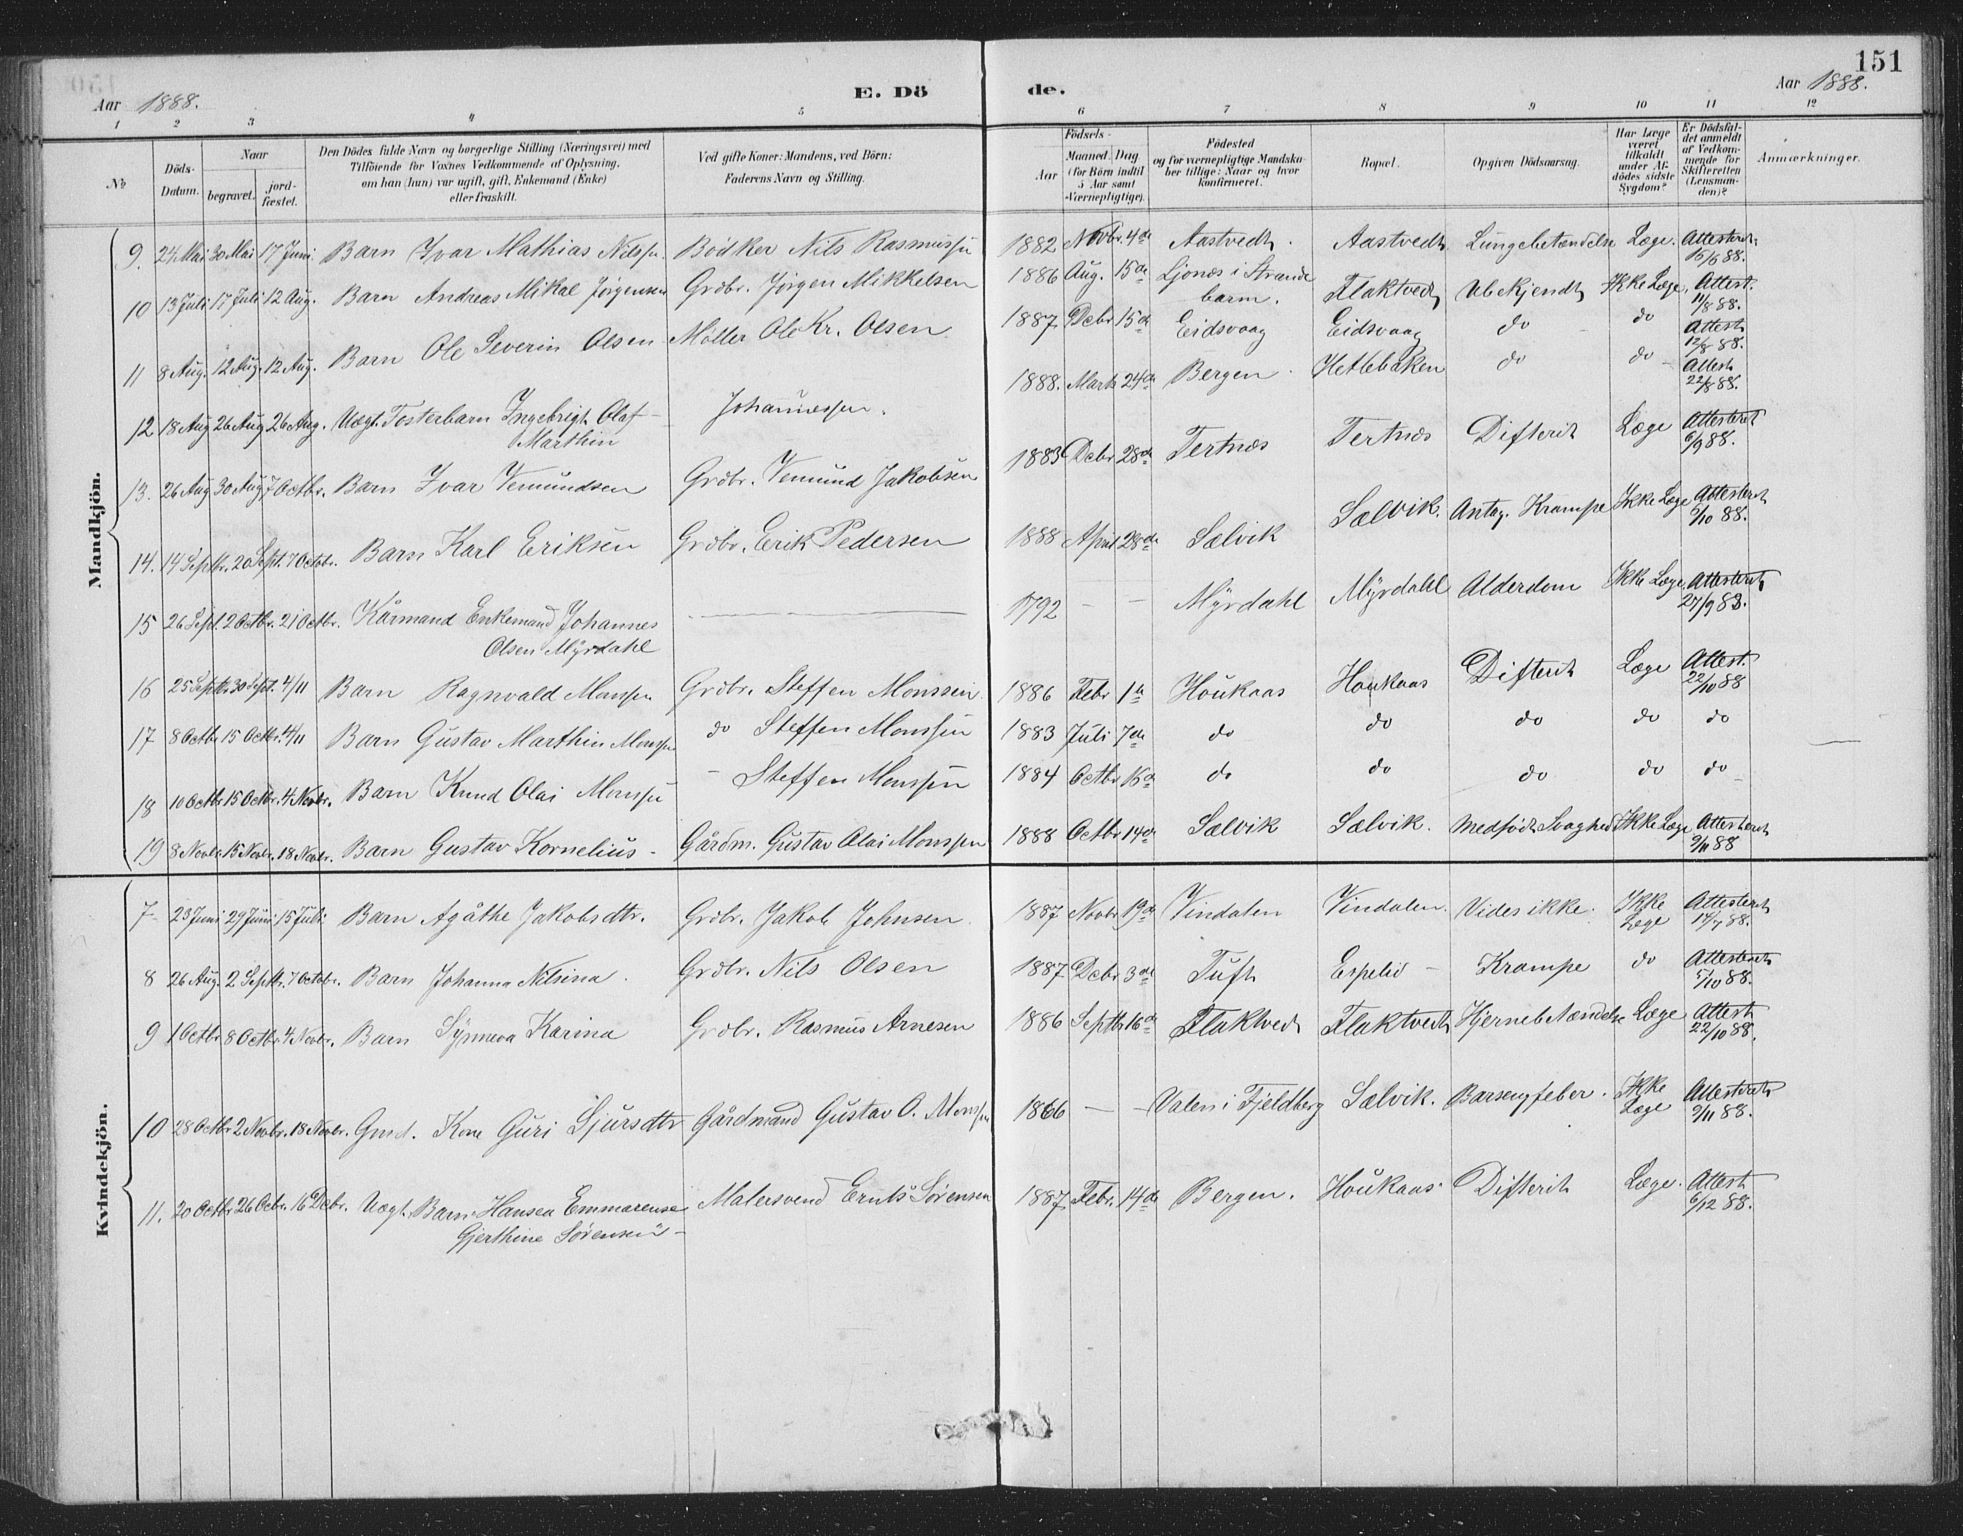 151
Aar 1888.
E. Dö
de.
Aar 1888.
1 2 3 4 5 6 7 8 9 10 11 12
No
Döds-
Datum.
Naar
begravet.
jord-
fæstet.
Den Dödes fulde Navn og borgerlige Stilling (Næringsvei) med
Tilföiende for Voxnes Vedkommende af Oplysning,
om han (hun) var ugift, gift, Enkemand (Enke)
eller fraskilt.
Ved gifte Koner: Mandens, ved Börn:
Faderens Navn og Stilling.
Födsels-
Aar
Maaned. Dag
(for Börn indtil
5 Aar samt
Værnepligtige).
Födested
og for værnepligtige Mandska-
ber tillige: Naar og hvor
konfirmeret.
Bopæl.
Opgiven Dödsaarsag.
Har Læge
været
tilkaldt
under Af-
dödes sidste
Sygdom?
Er Dödsfal-
det anmeldt
af Vedkom-
mende for
Skifteretten
(Lensman-
den)?
Anmærkninger.
Mandkjön.
9. 24 Mai 30 Mai 17 Juni Barn Ivar Mathias Nilssen. Bödker Nils Rasmussen 1882 Novbr. 4de Aastvedt. Aastvedt Lungebetændelse Læge. Attesteret 15/6 88.
10 13 Juli 17 Juli 12 Aug. Barn Andreas Mikal Jørgensen Grdbr. Jørgen Mikkelsen 1886 Aug. 15de Ljonæs i Strande
barm. Flaktvedt Ubekjendt Ikke Læge. Attest. 11/8 88.
11 8 Aug. 12 Aug. 12 Aug. Barn Ole Severin Olsen Möller Ole Kr. Olsen 1887 Decbr 15de Eidsvaag Eidsvaag do do Attest. 12/8 88.
12 18 Aug 26 Aug 26 Aug. Uægt. Fosterbarn Ingebrigt Olaf
Marthin Johannessen. 1888. Marts 24de Bergen. Hetlebaken do do Attest 22/8 88.
13. 26 Aug 30 Aug 7 Octbr. Barn Ivar Vemundsen Grdbr. Vemund Jakobsen 1883 Decbr 28de Tertnæs Tertnæs Difterit Læge Attesteret 6/9 88.
14. 14 Septbr. 20 Sept. 7 Octobr. Barn Karl Eriksen Grdbr. Erik Pedersen 1888 April 28de Sælvik Sælvik. Antag. Krampe Ikke Læge Attesteret 5/10 88.
15 26 Sept. 2 Octbr. 21 Octbr. Kårmand Enkemand Johannes
Olsen Myrdahl 1792 Myrdahl Myrdahl Alderdom Ikke Læge Attesteret 27/9 88.
16 25 Septbr 30 Sept. 4/11 Barn Ragnvald Monssen Grdbr. Steffen Monssen 1886 Febr 1te Houkaas Houkaas Difterit Læge Attest. 22/10 88
17 8 Octbr 15 Octbr. 4/11 Barn Gustav Marthin Monssen do Steffen Monssen 1883 Juli 7de do do do do do
18 10 Octbr 15 Octbr. 4 Novbr. Barn Knud Olai Monssen Steffen Monssen 1884 Octbr 16de do do do do do
19 8 Novbr 15 Novbr. 18 Novbr. Barn Gustav Kornelius Gårdm. Gustav Olai Monssen 1888 Octbr 14de Sælvik Sælvik. Medfødt Svaghed Ikke Læge Attesteret 9/11 88
Kvindekjön.
7 23 Juni 29 Juni 15 Juli Barn Agåthe Jakobsdtr. Grdbr. Jakob Johnsen 1887 Novbr 19de Vindalen Vindalen. Vides ikke. Ikke
Læge Attesteret 14/7 88.
8 26 Aug. 2 Septbr. 7 Octobr. Barn Johanna Nilsina. Grdbr. Nils Olsen 1887 Decbr 3de Tuft Espelid Krampe do Attesteret 5/10 88.
9 1 Octbr 8 Octbr. 4 Novbr. Barn Synneva Karina Grdbr. Rasmus Arnesen 1886 Septbr 16de Flaktvedt Flaktvedt Hjernebetændelse Læge Attest 22/10 88.
10 28 Octbr 2 Novbr. 18 Novbr. Gmd. Kone Guri Sjursdtr Gårdmand Gustav O. Monssen 1866 Valen i Fjeldberg Sælvik. Barsengfeber. Ikke
Læge Attesteret 9/11 88.
11. 20 Octbr 26 Octbr. 16 Decbr. Uægt. Barn. Hansea Emmarense
Gjerthine Sørensen Malersvend Ernts Sørensen 1887 Febr. 14de Bergen. Houkaas Difterit Læge. Attest 6/12 88.